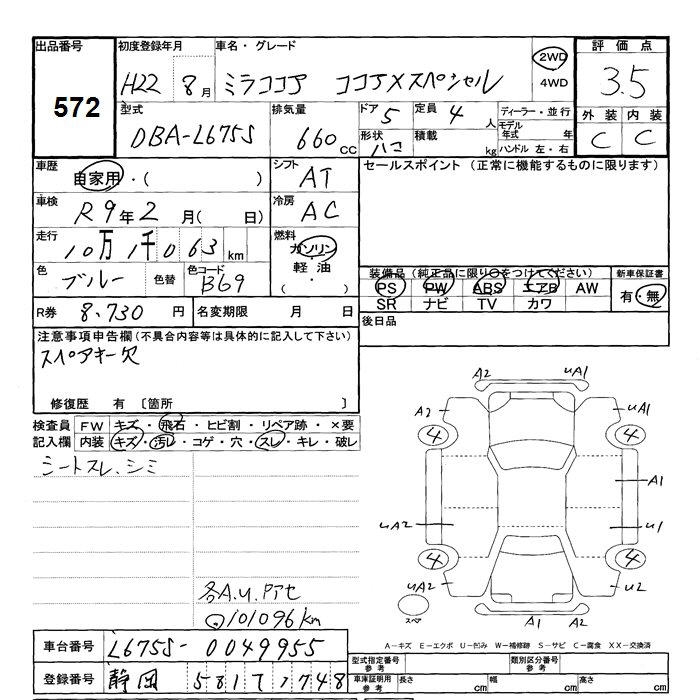 出品番号 初度登録年月 車名・グレード 評価点
572 H22 8月 ミラココア ココアXスペシャル 2WD 4WD 3.5
型式 排気量 ドア 5 定員 4人 ディーラー・並行 外装 内装
DBA-L675S 660cc 形状 ハコ 積載 kg モデル年式 年 C C
ハンドル 左・右
車歴 自家用・( ) シフト AT セールスポイント(正常に機能するものに限ります)
車検 R9年2月( 日) 冷房 AC
走行 10万1千063km 燃料 ガソリン・軽油 ( ・ )
色 ブルー 色替 色コード B69 装備品(純正品に限り○をつけてください) 新車保証書
PS PW ABS エアB AW 有・無
SR ナビ TV カワ
R券 8,730円 名変期限 月 日 後日品
注意事項申告欄(不具合内容等は具体的に記入して下さい)
スペアキー欠
修復歴 有 〔箇所 〕
検査員記入欄 FW キズ・飛石・ヒビ割・リペア跡・×要
内装 キズ・汚レ・コゲ・穴・スレ・キレ・破レ
シートスレ、シミ
A2 UA1
A2 UA1
4 4
A1
UA2 U1
4 4
UA2 U2
スペア
A1 A2
各A.U.Pアセ
101096km
A-キズ E-エクボ U-凹み W-補修跡 S-サビ C-腐食 XX-交換済
車台番号 L675S-0049955
型式指定番号 参考 類別区分番号 参考
登録番号 静岡 581 1748
車庫証明用 参考 長さ cm 幅 cm 高さ cm